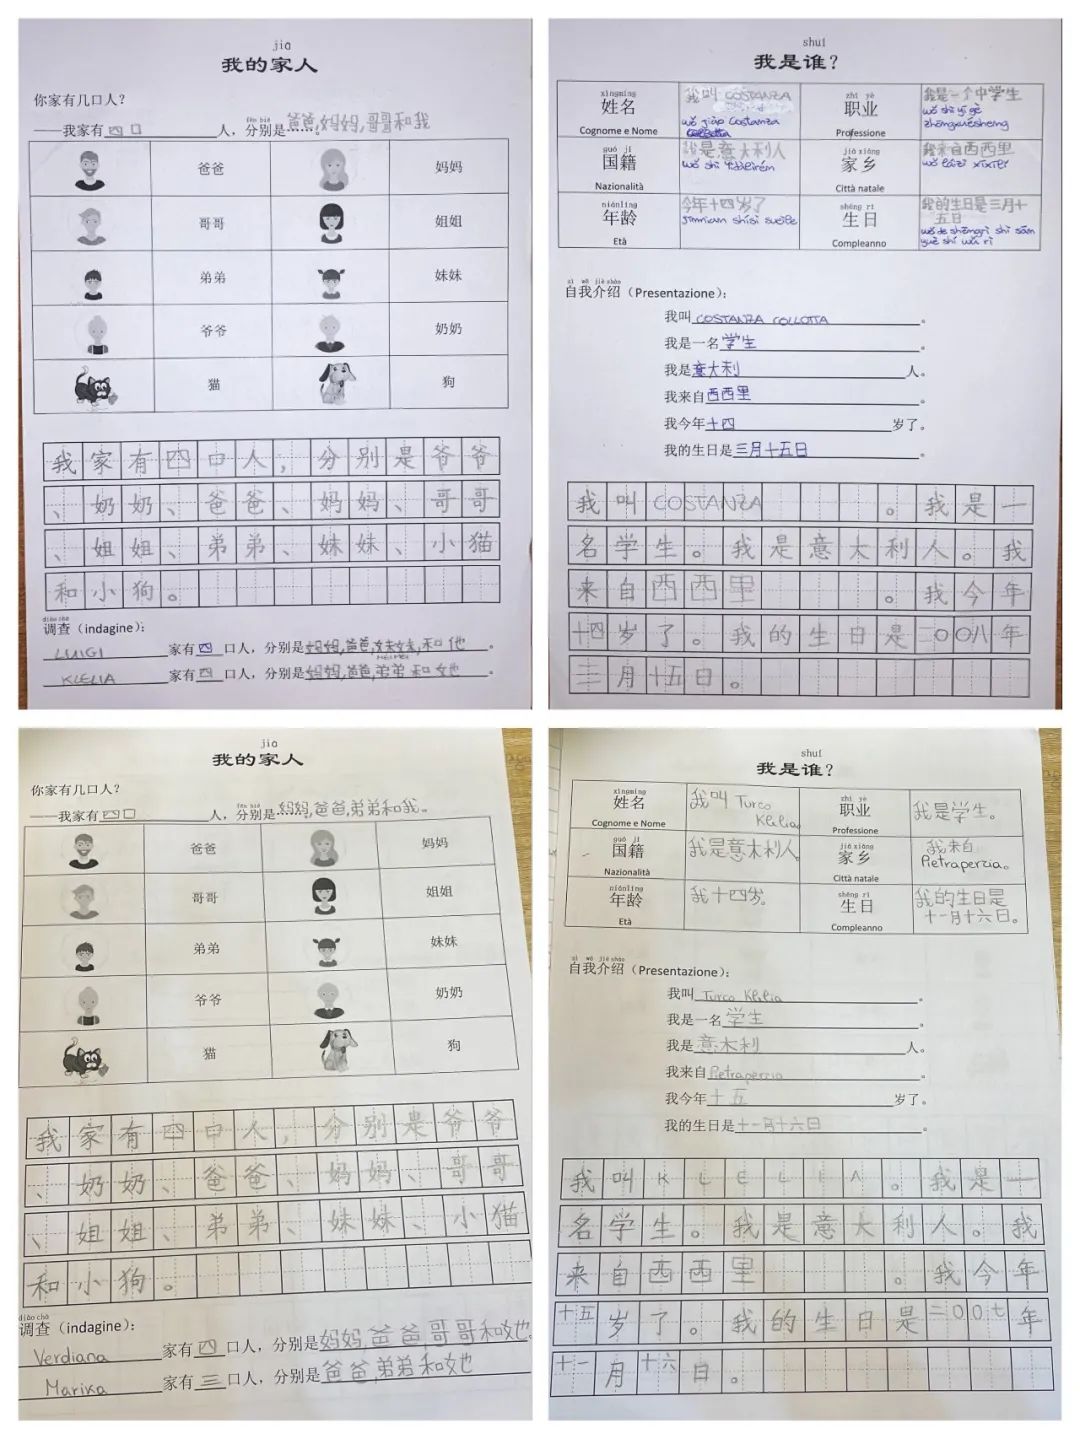 jiā
我的家人
你家有几口人？
——我家有四口人，分别是……爸爸,妈妈,哥哥和我
爸爸 妈妈
哥哥 姐姐
弟弟 妹妹
爷爷 奶奶
猫 狗
我家有四口人，分别是爷爷
、奶奶、爸爸、妈妈、哥哥
、姐姐、弟弟、妹妹、小猫
和小狗。
diào chá
调查（indagine）：
LUIGI 家有四口人，分别是妈妈,爸爸,妹妹,和他。
KLELIA 家有四口人，分别是妈妈,爸爸,弟弟和她。
shuí
我是谁？
xìngmíng
姓名
Cognome e Nome
我叫 COSTANZA
wǒ jiào Costanza
zhí yè
职业
Professione
我是一个中学生
wǒ shì yī gè
zhōngxuéshēng
guó jí
国籍
Nazionalità
我是意大利人
wǒ shì Yìdàlìrén
jiā xiāng
家乡
Città natale
我来自西西里
wǒ láizì xīxīlǐ
niánlíng
年龄
Età
今年十四岁了
shēng rì
生日
Compleanno
我的生日是三月十
五日
wǒ de shēngrì shì sān
yuè shí wǔ rì
zì wǒ jiè shào
自我介绍（Presentazione）：
我叫 COSTANZA COLLOTTA。
我是一名学生。
我是意大利人。
我来自西西里。
我今年十四岁了。
我的生日是三月十五日。
我叫COSTANZA。我是一
名学生。我是意大利人。我
来自西西里。我今年
十四岁了。我的生日是二〇〇八年
三月十五日。
jiā
我的家人
你家有几口人？
——我家有四口人，分别是……妈妈,爸爸,弟弟和我。
爸爸 妈妈
哥哥 姐姐
弟弟 妹妹
爷爷 奶奶
猫 狗
我家有四口人，分别是爷爷
、奶奶、爸爸、妈妈、哥哥
、姐姐、弟弟、妹妹、小猫
和小狗。
diào chá
调查（indagine）：
Verdiana 家有四口人，分别是妈妈,爸爸哥哥和她。
Marika 家有三口人，分别是爸爸,弟弟和她
shuí
我是谁？
xìngmíng
姓名
Cognome e Nome
我叫 Turco
Klelia
zhí yè
职业
Professione
我是学生。
guó jí
国籍
Nazionalità
我是意木利人
jiā xiāng
家乡
Città natale
我来自
Pietraperzia。
niánlíng
年龄
Età
我十四岁。
shēng rì
生日
Compleanno
我的生日是
十一月十六日。
zì wǒ jiè shào
自我介绍（Presentazione）：
我叫 Turco Klelia。
我是一名学生。
我是意木利人。
我来自Pietraperzia。
我今年十五岁了。
我的生日是十一月十六日。
我叫KLELIA。我是一
名学生。我是意大利人。我
来自西西里。我今年
十五岁了。我的生日是二〇〇七年
十一月十六日。